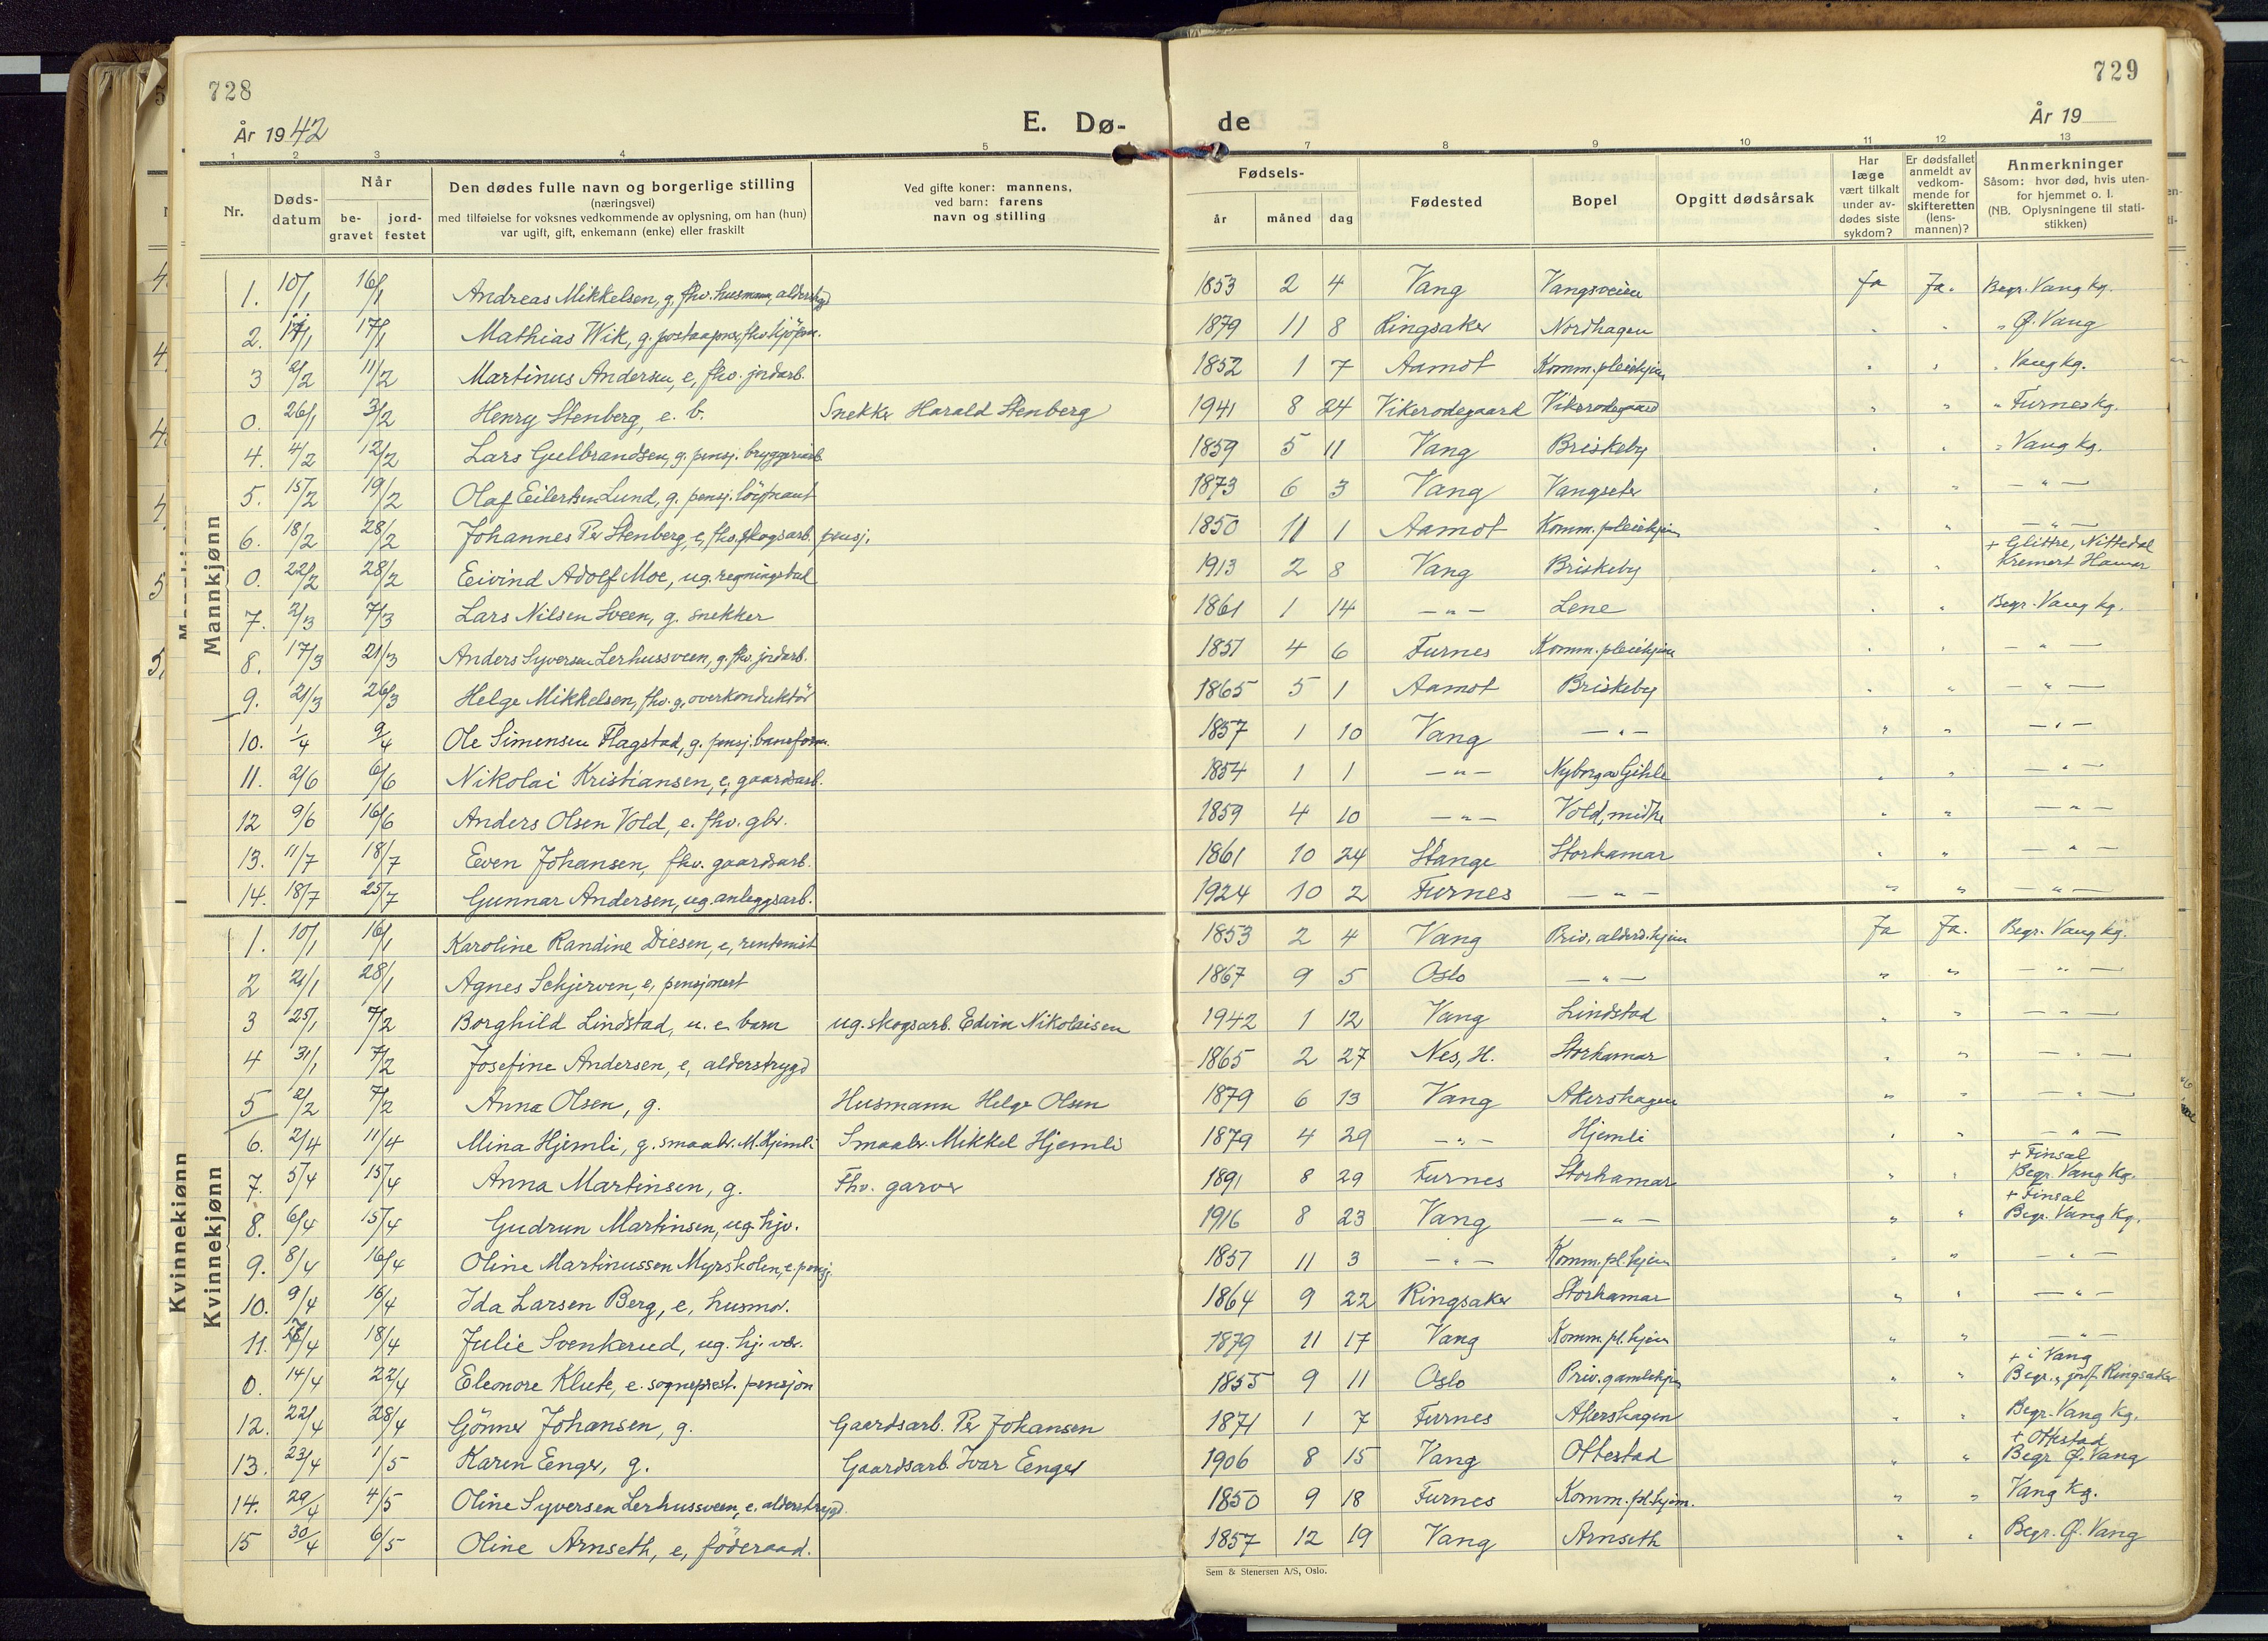 728
År 1942
E. Dø-
1 2 3 4 5
Nr.
Døds-
datum
Når
be-
gravet
jord-
festet
Den dødes fulle navn og borgerlige stilling
(næringsvei)
med tilføielse for voksnes vedkommende av oplysning, om han (hun)
var ugift, gift, enkemann (enke) eller fraskilt
Ved gifte koner: mannens,
ved barn: farens
navn og stilling
Mannkjønn
1. 10/1 16/1 Andreas Mikkelsen, g. fhv. husmann, alderstrygd
2. 11/1 17/1 Mathias Wik, g. postaapner, fhv. kjøpm.
3 2/2 11/2 Martinus Andersen, e, fhv. jordarb.
0. 26/1 3/2 Henry Stenberg, e. b. Snekker Harald Stenberg
4. 4/2 12/2 Lars Gulbrandsen, g. pensj. bryggeriarb.
5. 15/2 19/2 Olaf Eilertsen Lund, g. pensj. löytnant
6. 18/2 28/2 Johannes Per Stenberg, e, fhv. skogsarb. pensj.
0. 22/2 28/2 Eivind Adolf Moe, ug.
7. 2/3 7/3 Lars Nilsen Sveen, g. snekker
8. 17/3 21/3 Anders Syversen Lerhussveen, g. fhv. jordarb.
9. 21/3 26/3 Helge Mikkelsen, fhv. g. overkonduktör
10. 1/4 9/4 Ole Simensen Flagstad, g. pensj. baneform.
11. 2/6 6/6 Nikolai Kristiansen, e, gaardsarb.
12 9/6 16/6 Anders Olsen Vold, e. fhv. gbr.
13. 11/7 18/7 Even Johansen, fhv. gaardsarb.
14. 18/7 25/7 Gunnar Andersen, ug. anleggsarb.
Kvinnekjønn
Kvinnekjønn
1. 10/1 16/1 Karoline Randine Diesen, e, rentenist
2 21/1 28/1 Agnes Schjerven, e, pensjonert
3 25/1 7/2 Borghild Lindstad, u. e. barn ug. skogsarb. Edvin Nikolaisen
4 31/1 7/2 Josefine Andersen, e, alderstrygd
5 2/2 7/2 Anna Olsen, g. Husmann Helge Olsen
6. 2/4 11/4 Mina Hjemli, g. smaabr. M. Hjemli Smaabr. Mikkel Hjemli
7. 5/4 15/4 Anna Martinsen, g. Fhv. garver
8. 6/4 15/4 Gudrun Martinsen, ug. hjv.
9. 8/4 16/4 Oline Martinussen Myrskolen, e. pensj.
10. 9/4 16/4 Ida Larsen Berg, e, husmor.
11. /4 18/4 Julie Svenkerud, ug. hj. vær.
0. 14/4 22/4 Eleonore Klute, e. sogneprest. pensjon
12. 22/4 28/4 Gönner Johansen, g. Gaardsarb. Per Johansen
13. 23/4 1/5 Karen Enger, g. Gaardsarb. Ivar Enger
14. 29/4 4/5 Oline Syversen Lerhussveen, e. alderstrygd.
15 30/4 6/5 Oline Arnseth, e, föderaad.
729
År 19
de
7 8 9 10 11 12 13
Fødsels-
år
måned
dag
Fødested
Bopel
Opgitt dødsårsak
Har
læge
vært tilkalt
under av-
dødes siste
sykdom?
Er dødsfallet
anmeldt av
vedkom-
mende for
skifteretten
(lens-
mannen)?
Anmerkninger
Såsom: hvor død, hvis uten-
for hjemmet o. l.
(NB. Oplysningene til stati-
stikken)
1853 2 4 Vang Vangsveien Ja Ja. Begr. Vang kg.
1879 11 8 Ringsaker Nordhagen " " " Ø. Vang
1852 1 7 Aamot Komm. pleiehjem " " " Vang kg.
1941 8 24 Vikerødegaard Vikerødegaard " " " Furnes kg.
1859 5 11 Vang Briskeby " " " Vang kg.
1873 6 3 Vang Vangseter " " — " —
1850 11 1 Aamot Komm. pleiehjem " " — " —
+ Glittre, Nittedal
1913 2 8 Vang Briskeby " " Kremert Hamar
1861 1 14 — " — Lene " " Begr. Vang kg.
1851 4 6 Furnes Komm. pleiehjem " " — " —
1865 5 1 Aamot Briskeby " " — " —
1857 1 10 Vang — " — " " — " —
1854 1 1 — " — Nyborg av Gihle " " — " —
1859 4 10 — " — Vold, midtre " " — " —
1861 10 24 Stange Storhamar " " — " —
1924 10 2 Furnes — " — " " — " —
1853 2 4 Vang Priv. alderd. hjem Ja Ja. Begr. Vang kg.
1867 9 5 Oslo — " — " " — " —
1942 1 12 Vang Lindstad " " — " —
1865 2 27 Nes, H. Storhamar " " — " —
1879 6 13 Vang Akershagen " " — " —
1879 4 29 — " — Hjemli " " — " —
+ Finsal
1891 8 29 Furnes Storhamar " " Begr. Vang Kg.
+ Finsal
1916 8 23 Vang — " — " " Begr. Vang Kg.
1851 11 3 — " — Komm. pl. hjem " " — " —
1864 9 22 Ringsaker Storhamar " " — " —
1879 11 17 Vang Komm. pl. hjem " " — " —
+ i Vang
1855 9 11 Oslo Priv. gamlehjem " " Begr. jordf. Ringsaker
1871 1 7 Furnes Akershagen " " Begr. Vang Kg.
+ Ottestad
1906 8 15 Vang Ottestad " " Begr Ø. Vang
1850 9 18 Furnes Komm. pl. hjem. " " Vang Kg.
1857 12 19 Vang Arnseth " " Begr. Ø. Vang
Sem & Stenersen A/S, Oslo.